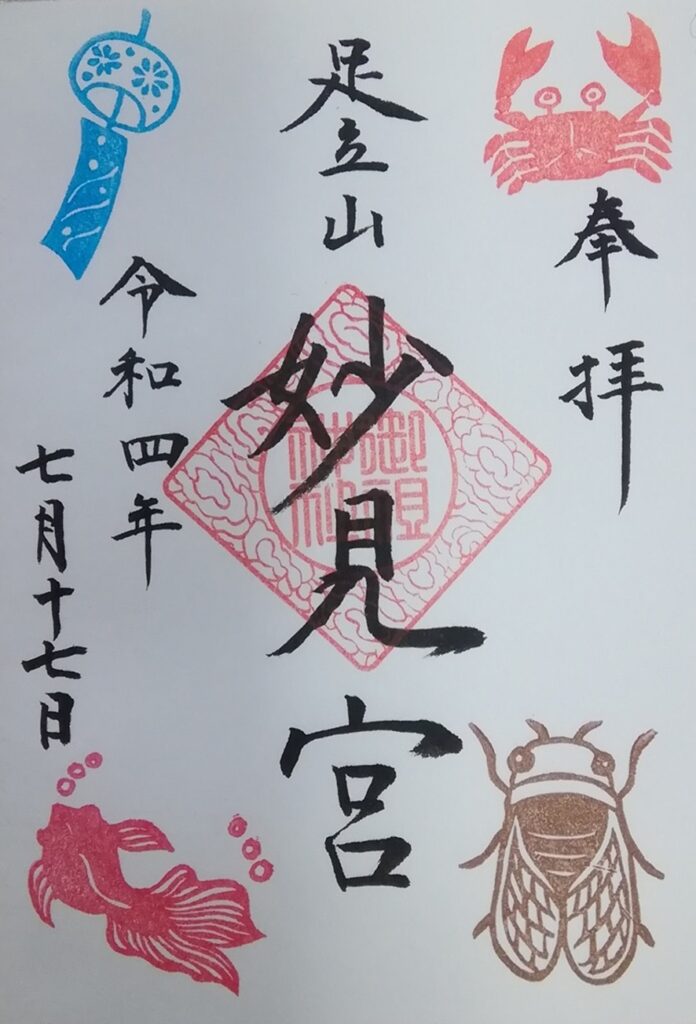 奉拝
足立山
妙見宮
御祖神社
令和四年
七月十七日